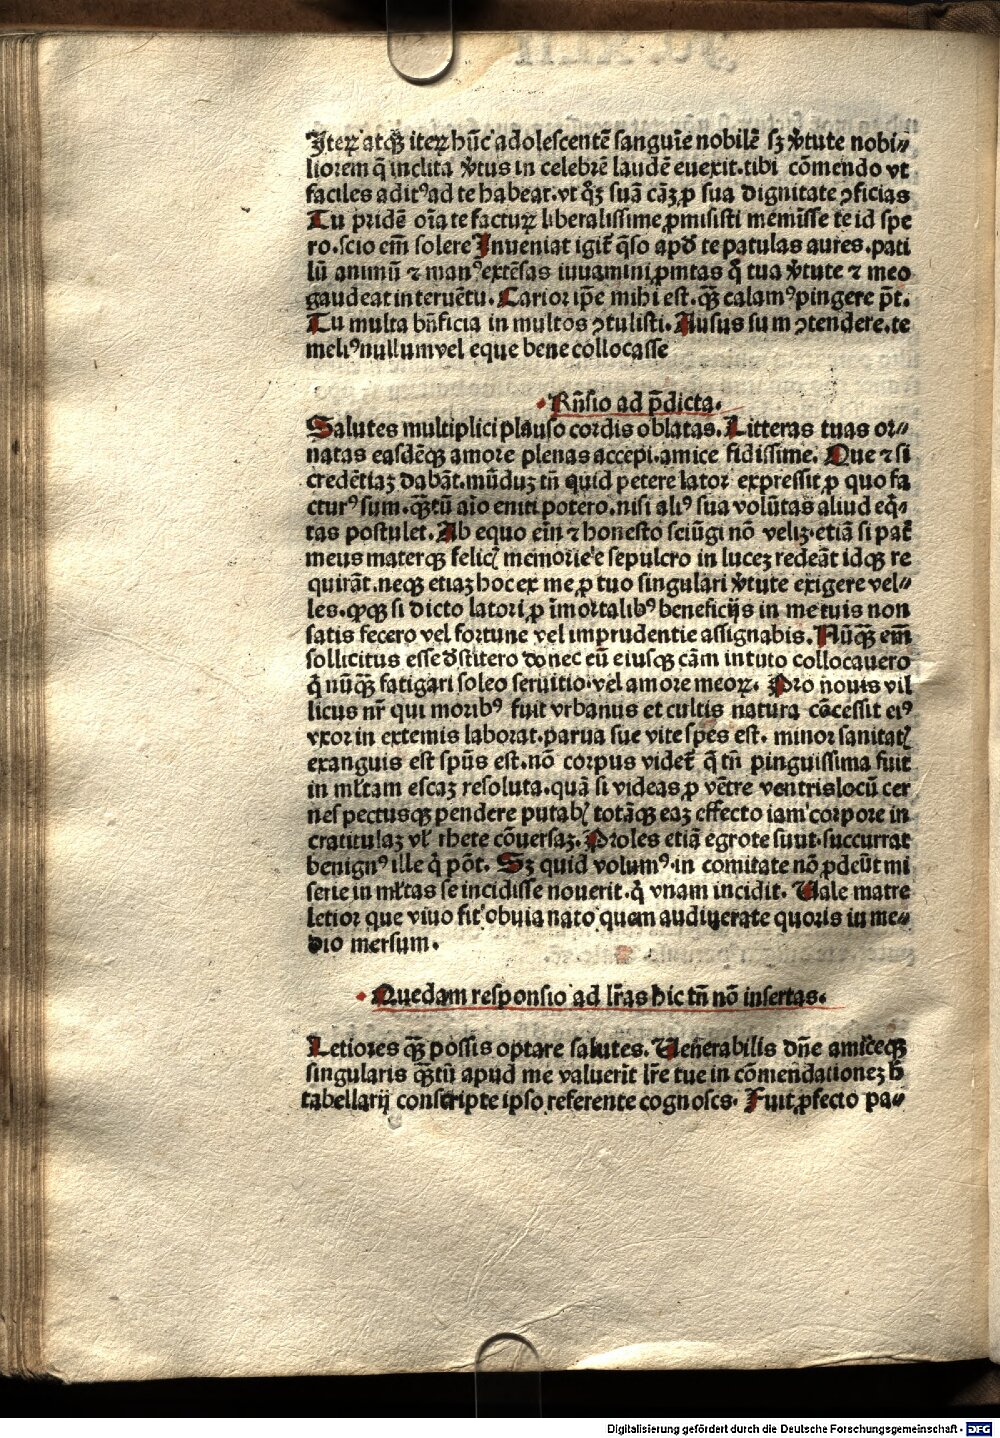 Iteꝝ atqꝫ iteꝝ hūc adolescentē sanguīe nobilē sꝫ v̓tute nobi⸗
liorem q̄ inclita v̓tus in celebrē laudē euexit. tibi cōmendo vt
faciles aditꝰ ad te habeat. vt q̄ꝫ suā cāꝫ ꝑ sua dignitate ꝯficias
Tu pridē oīa te facturꝝ liberalissime ꝓmisisti memīsse te id spe
ro. scio em̄ solere Inueniat igit̄ q̄so apd̄ te patulas aures. pati
lū animū ⁊ manꝰ extēsas iuuamini ꝓmtas q̄ tua v̓tute ⁊ meo
gaudeat interuētu. Carior ip̄e mihi est. qꝫ̄ calamꝰ pingere p̄t.
Tu multa bn̄ficia in multos ꝯtulisti. Ausus sum ꝯtendere. te
meliꝰ nullum vel eque bene collocasse
Rn̄sio ad p̄dicta.
Salutes multiplici plauso cordis oblatas. Litteras tuas or⸗
natas easdēqꝫ amore plenas accepi. amice fidissime. Que ⁊ si
credētiaꝫ dabāt. mūduꝫ tn̄ quid petere lator expressit ꝓ quo fa
cturꝰ sum. qꝫ̄tū aīo eniti potero. nisi aliꝰ sua volūtas aliud eq̄⸗
tas postulet. Ab equo eīn ⁊ honesto seiūgi nō veliꝫ. etiā si pat̄
meus materqꝫ felicꝭ memorie e sepulcro in luceꝫ redeāt idqꝫ re
quirāt. neqꝫ etiaꝫ hoc ex me ꝓ tuo singulari v̓tute exigere vel⸗
les. qꝓqꝫ si dicto latori ꝓ īmortalibꝰ beneficijs in me tuis non
satis fecero vel fortune vel imprudentie assignabis. Nūqꝫ̄ em̄
sollicitus esse dstitero donec eū eiusqꝫ cām in tuto collocauero
q̄ nūqꝫ̄ fatigari soleo seruitio. vel amore meoꝝ. Pro nouis vil
licus nr̄ qui moribꝰ fuit vrbanus et cultis natura cōcessit eiꝰ
vxor in extemis laborat. parua sue vite spes est. minor sanitatꝭ
exanguis est spūs est. nō corpus videt̄ q̄ tn̄ pinguissima fuit
in ml̄tam escaꝫ resoluta. quā si videas ꝑ vētre ventris locū cer
nes pectusqꝫ pendere putabꝭ totāqꝫ eaꝫ effecto iam corpore in
cratitulaꝫ vl̄ rhete cōuersaꝫ. Proles etiā egrote sunt. succurrat
benignꝰ ille q̄ pōt. Sꝫ quid volumꝰ. in comitate nō ꝓdeūt mi
serie in ml̄tas se incidisse nouerit. q̄ vnam incidit. Uale matre
letior que viuo fit obuia nato quem audiuerate quoris in me⸗
dio mersum.
Quedam responsio ad lr̄as hic tn̄ nō insertas.
Letiores qꝫ̄ possis optare salutes. Uenerabilis dn̄e amiceqꝫ
singularis qꝫ̄tū apud me valuerīt lr̄e tue in cōmendationeꝫ h̄
tabellarij conscripte ipso referente cognosces. Fuit ꝓfecto pa⸗
Digitalisierung gefördert durch die Deutsche Forschungsgemeinschaft - DFG